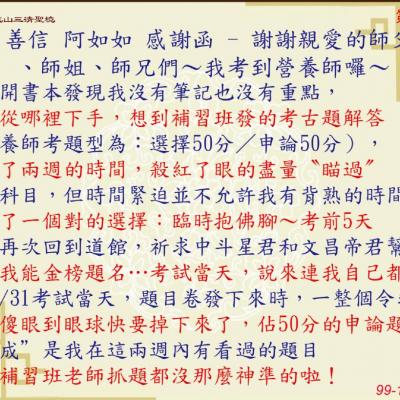 山三清聖境
善信 阿如如 感謝函 － 謝謝親愛的師
、師姐、師兄們～我考到營養師囉～
開書本發現我沒有筆記也沒有重點，
從哪裡下手，想到補習班發的考古題解答
養師考題型為：選擇50分／申論50分），
了兩週的時間，殺紅了眼的盡量〝瞄過〞
科目，但時間緊迫並不允許我有背熟的時間
了一個對的選擇：臨時抱佛腳～考前5天
再次回到道館，祈求中斗星君和文昌帝君幫
我能金榜題名…考試當天，說來連我自己都
/31考試當天，題目卷發下來時，一整個令
傻眼到眼球快要掉下來了，佔50分的申論題
成”是我在這兩週內有看過的題目
補習班老師抓題都沒那麼神準的啦！
99-1